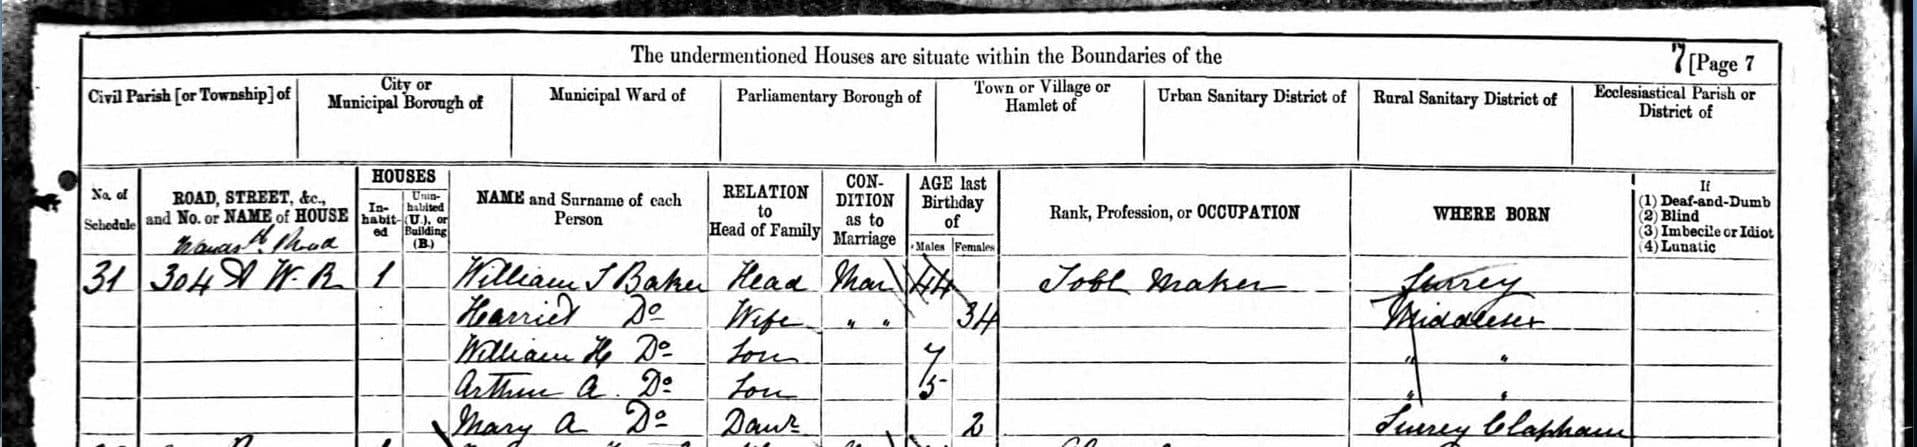 The undermentioned Houses are situate within the Boundaries of the 7 [Page 7
Civil Parish [or Township] of City or Municipal Borough of Municipal Ward of Parliamentary Borough of Town or Village or Hamlet of Urban Sanitary District of Rural Sanitary District of Ecclesiastical Parish or District of
No. of Schedule ROAD, STREET, &c., and No. or NAME of HOUSE HOUSES In-habit-ed Unin-habited (U.), or Building (B.) NAME and Surname of each Person RELATION to Head of Family CON-DITION as to Marriage AGE last Birthday of Males Females Rank, Profession, or OCCUPATION WHERE BORN If (1) Deaf-and-Dumb (2) Blind (3) Imbecile or Idiot (4) Lunatic
Road
31 304 A W. R 1 William S Baker Head Mar 44 Maker Surrey
Harriet Do Wife " " 34 Middlesex
William H Do Son 7 " "
Arthur A. Do Son 5 " "
Mary A Do Daur 2 Surrey Clapham